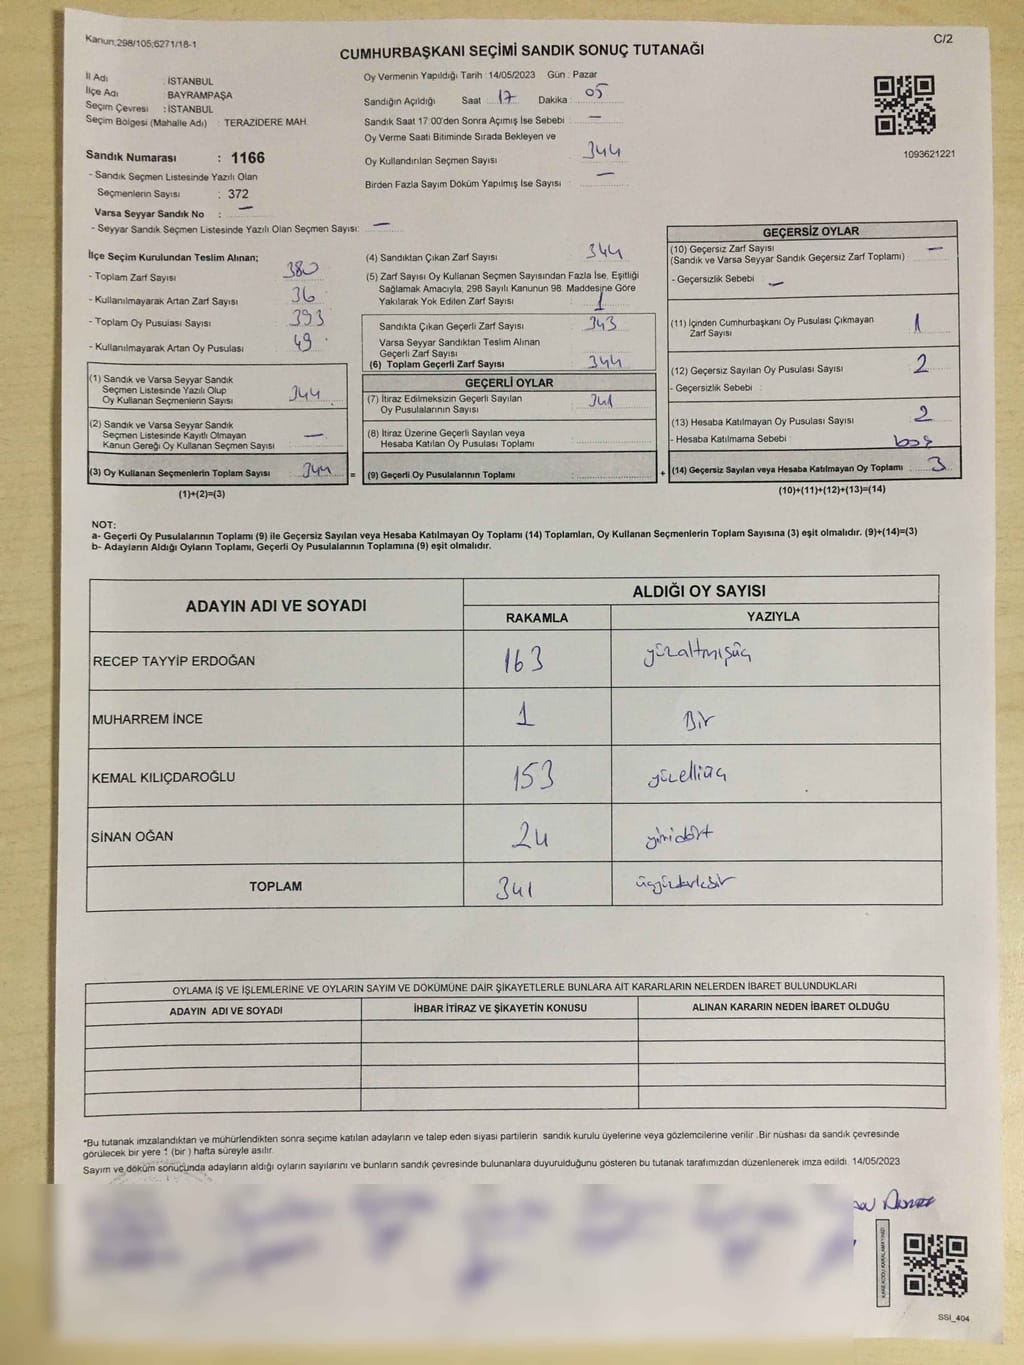 Kanun:298/105;6271/18-1
C/2
CUMHURBAŞKANI SEÇİMİ SANDIK SONUÇ TUTANAĞI
İl Adı : İSTANBUL
İlçe Adı : BAYRAMPAŞA
Seçim Çevresi : İSTANBUL
Seçim Bölgesi (Mahalle Adı) : TERAZİDERE MAH.
Oy Vermenin Yapıldığı Tarih :14/05/2023 Gün : Pazar
Sandığın Açıldığı Saat 17 Dakika : 05
Sandık Saat 17:00'den Sonra Açımış İse Sebebi : —
Oy Verme Saati Bitiminde Sırada Bekleyen ve
Oy Kullandırılan Seçmen Sayısı : 344
Birden Fazla Sayım Döküm Yapılmış İse Sayısı : —
1093621221
Sandık Numarası : 1166
- Sandık Seçmen Listesinde Yazılı Olan
Seçmenlerin Sayısı : 372
Varsa Seyyar Sandık No : —
- Seyyar Sandık Seçmen Listesinde Yazılı Olan Seçmen Sayısı: —
İlçe Seçim Kurulundan Teslim Alınan;
- Toplam Zarf Sayısı 380
- Kullanılmayarak Artan Zarf Sayısı 36
- Toplam Oy Pusulası Sayısı 393
- Kullanılmayarak Artan Oy Pusulası 49
(1) Sandık ve Varsa Seyyar Sandık
Seçmen Listesinde Yazılı Olup
Oy Kullanan Seçmenlerin Sayısı 344
(2) Sandık ve Varsa Seyyar Sandık
Seçmen Listesinde Kayıtlı Olmayan
Kanun Gereği Oy Kullanan Seçmen Sayısı —
(3) Oy Kullanan Seçmenlerin Toplam Sayısı 344
(1)+(2)=(3)
(4) Sandıktan Çıkan Zarf Sayısı 344
(5) Zarf Sayısı Oy Kullanan Seçmen Sayısından Fazla İse, Eşitliği
Sağlamak Amacıyla, 298 Sayılı Kanunun 98. Maddesine Göre
Yakılarak Yok Edilen Zarf Sayısı 1
Sandıkta Çıkan Geçerli Zarf Sayısı 343
Varsa Seyyar Sandıktan Teslim Alınan
Geçerli Zarf Sayısı
(6) Toplam Geçerli Zarf Sayısı 344
GEÇERLİ OYLAR
(7) İtiraz Edilmeksizin Geçerli Sayılan
Oy Pusulalarının Sayısı 341
(8) İtiraz Üzerine Geçerli Sayılan veya
Hesaba Katılan Oy Pusulası Toplamı
= (9) Geçerli Oy Pusulalarının Toplamı
GEÇERSİZ OYLAR
(10) Geçersiz Zarf Sayısı
(Sandık ve Varsa Seyyar Sandık Geçersiz Zarf Toplamı) —
- Geçersizlik Sebebi : —
(11) İçinden Cumhurbaşkanı Oy Pusulası Çıkmayan
Zarf Sayısı 1
(12) Geçersiz Sayılan Oy Pusulası Sayısı 2
- Geçersizlik Sebebi :
(13) Hesaba Katılmayan Oy Pusulası Sayısı 2
- Hesaba Katılmama Sebebi boş
+ (14) Geçersiz Sayılan veya Hesaba Katılmayan Oy Toplamı 3
(10)+(11)+(12)+(13)=(14)
NOT:
a- Geçerli Oy Pusulalarının Toplamı (9) ile Geçersiz Sayılan veya Hesaba Katılmayan Oy Toplamı (14) Toplamları, Oy Kullanan Seçmenlerin Toplam Sayısına (3) eşit olmalıdır. (9)+(14)=(3)
b- Adayların Aldığı Oyların Toplamı, Geçerli Oy Pusulalarının Toplamına (9) eşit olmalıdır.
ADAYIN ADI VE SOYADI
ALDIĞI OY SAYISI
RAKAMLA YAZIYLA
RECEP TAYYİP ERDOĞAN 163 yüzaltmışüç
MUHARREM İNCE 1 Bir
KEMAL KILIÇDAROĞLU 153 yüzelliüç
SİNAN OĞAN 24 yirmidört
TOPLAM 341 üçyüzkırkbir
OYLAMA İŞ VE İŞLEMLERİNE VE OYLARIN SAYIM VE DÖKÜMÜNE DAİR ŞİKAYETLERLE BUNLARA AİT KARARLARIN NELERDEN İBARET BULUNDUKLARI
ADAYIN ADI VE SOYADI İHBAR İTİRAZ VE ŞİKAYETİN KONUSU ALINAN KARARIN NEDEN İBARET OLDUĞU
*Bu tutanak imzalandıktan ve mühürlendikten sonra seçime katılan adayların ve talep eden siyasi partilerin sandık kurulu üyelerine veya gözlemcilerine verilir .Bir nüshası da sandık çevresinde
görülecek bir yere 1 (bir ) hafta süreyle asılır.
Sayım ve döküm sonucunda adayların aldığı oyların sayılarını ve bunların sandık çevresinde bulunanlara duyurulduğunu gösteren bu tutanak tarafımızdan düzenlenerek imza edildi. 14/05/2023
KARE KODU KARALAMAYINIZ!
SSİ_404